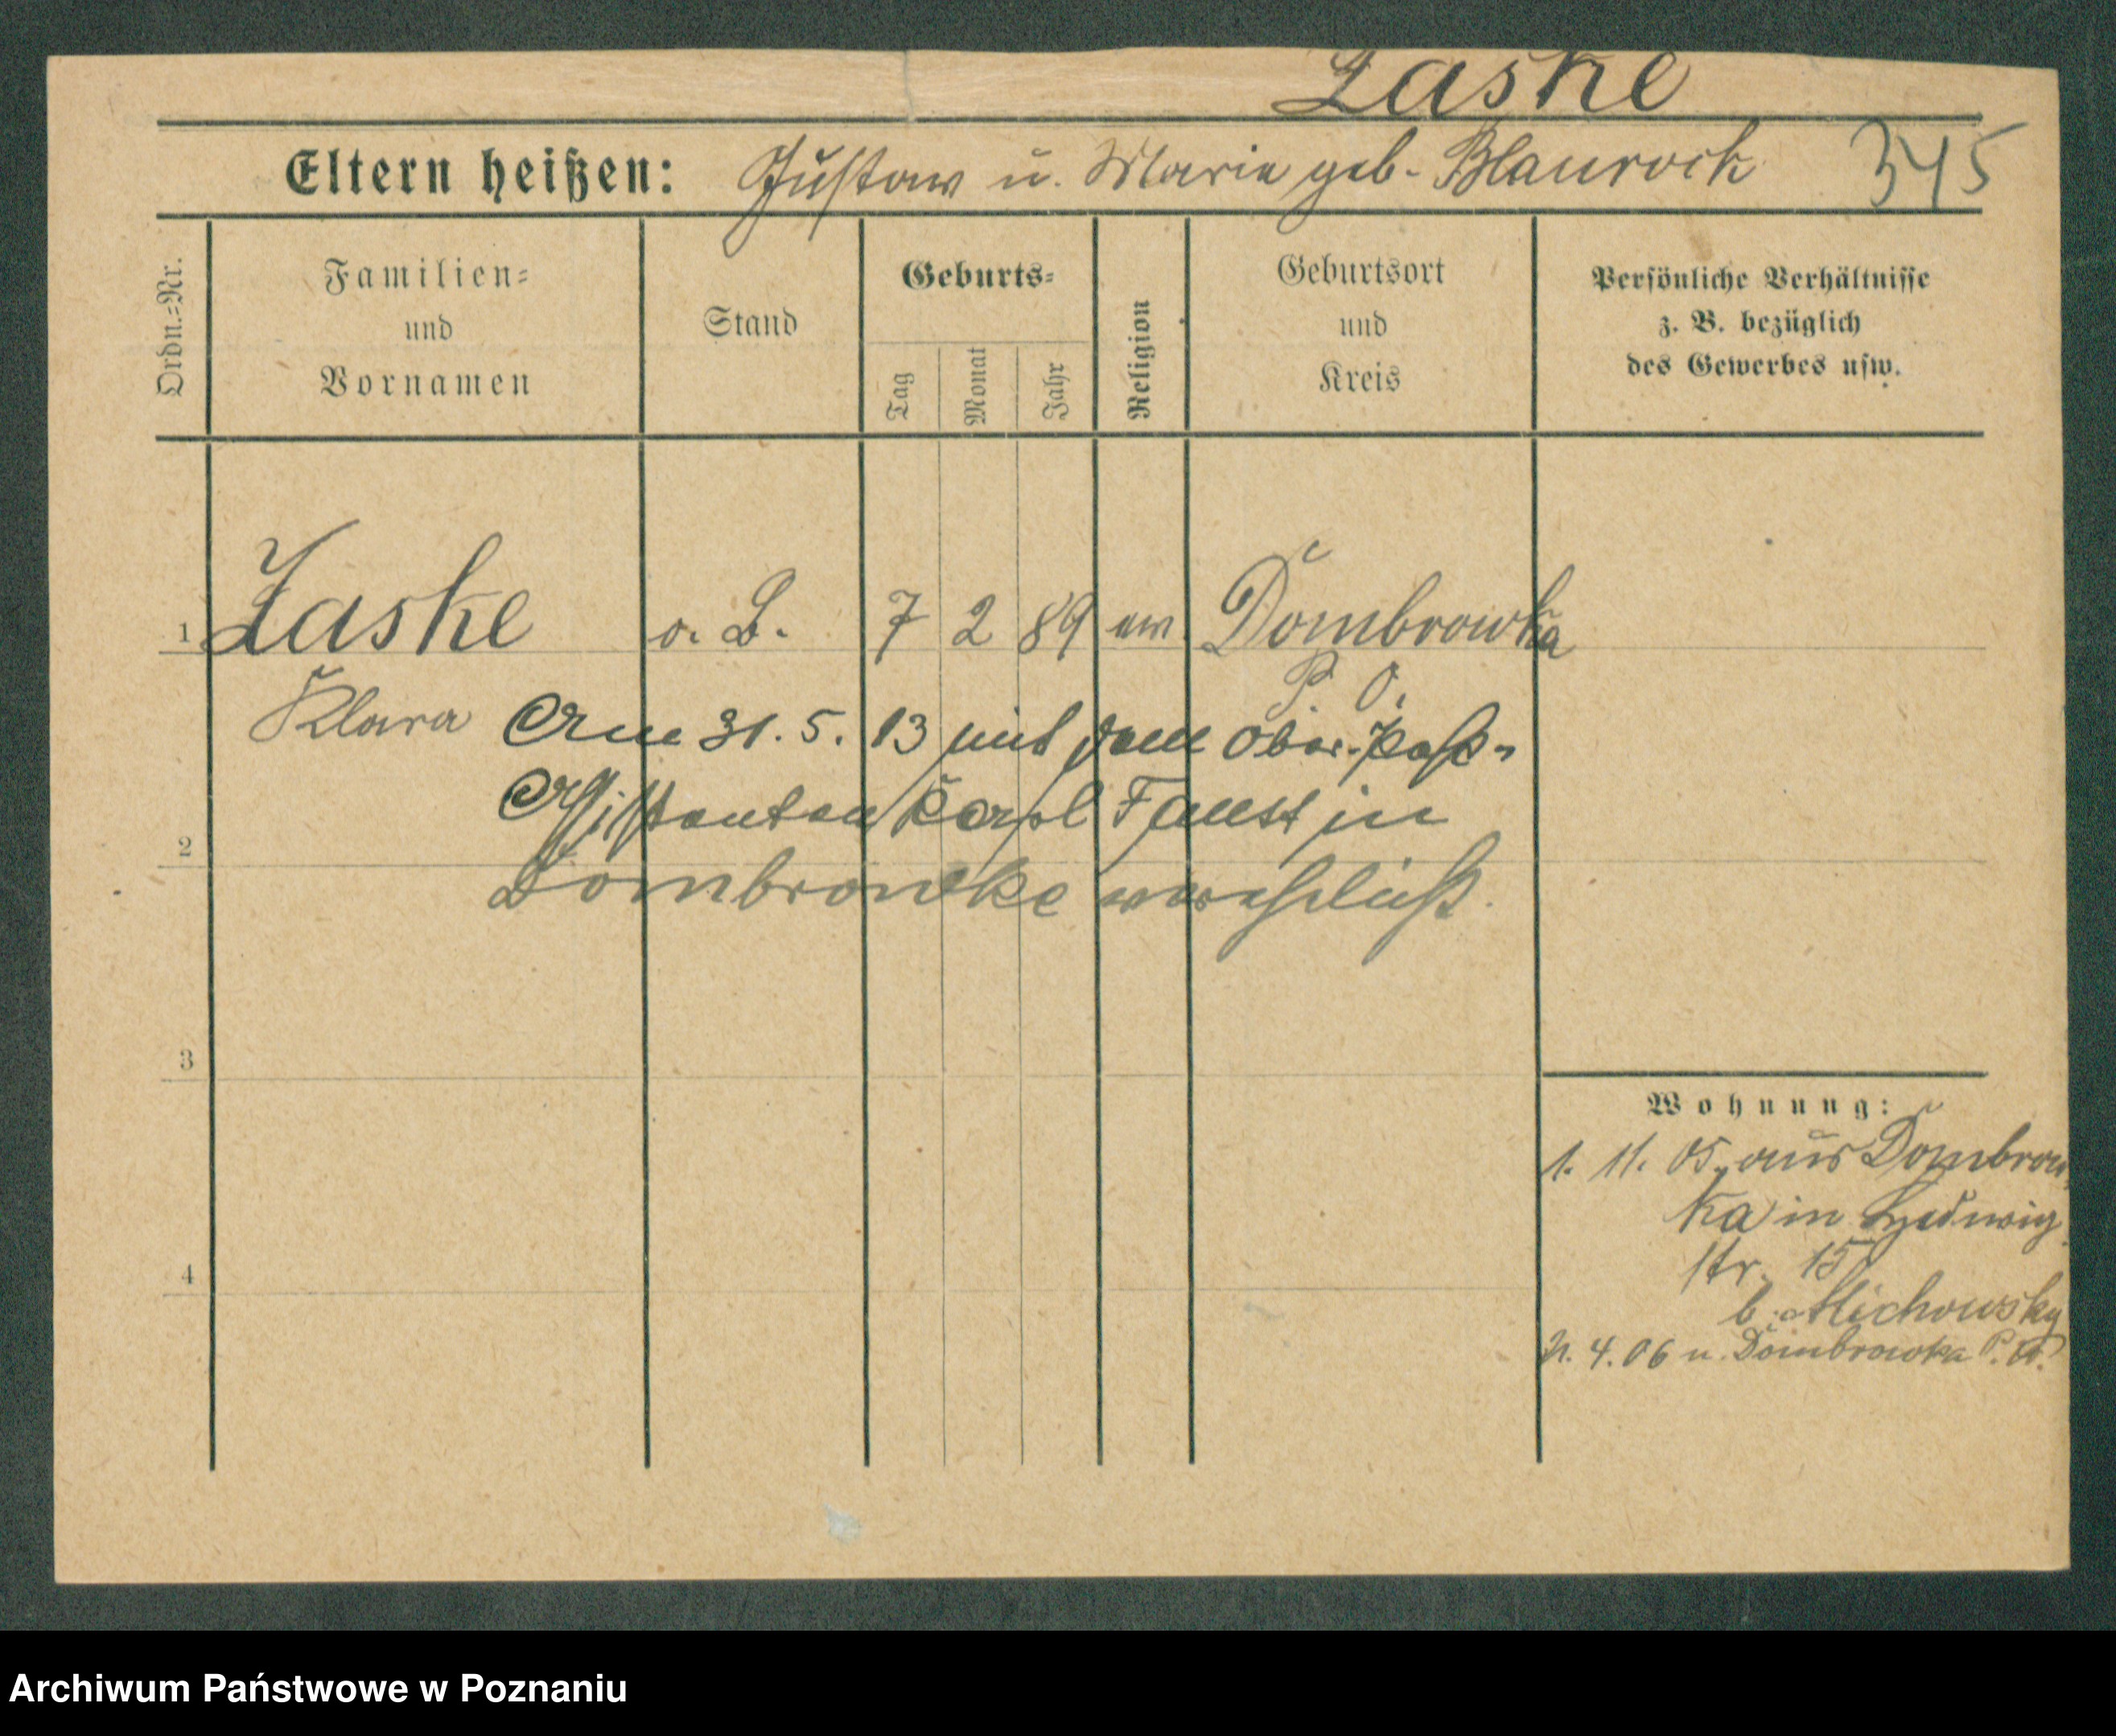 Laske
Eltern heißen: Gustav u. Marie geb. Blaurock 345
Ordn.-Nr.
Familien-
und
Vornamen
Stand
Geburts-
Tag
Monat
Jahr
Religion
Geburtsort
und
Kreis
Persönliche Verhältnisse
z. B. bezüglich
des Gewerbes usw.
1 Laske o. B. 7 2 89 ev. Dombrowka
P. O.
Klara Am 31. 5. 13 mit dem Ober-Post-
Assistenten Karl Faust in
2
Dombrowke verehelicht.
3
Wohnung:
1. 11. 05. aus Dombrow
ka in Hedwig
4
str. 15
b. Michowsky
4. 06 n. Dombrowka P. O.
Archiwum Państwowe w Poznaniu